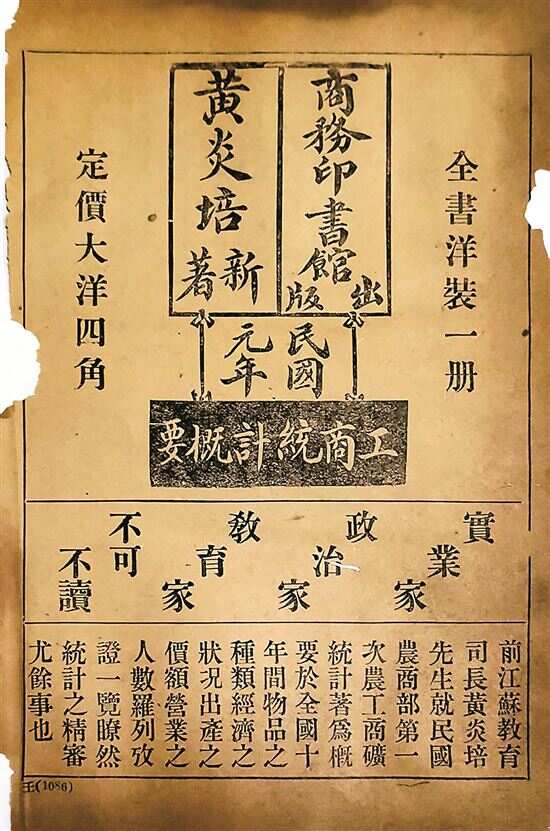 全書洋裝一册
商務印書館出版
黃炎培新著
定價大洋四角
民國
元年
工商統計概要
實業家
政治家
敎育家
不可
不讀
前江蘇敎育
司長黃炎培
先生就民國
農商部第一
次農工商礦
統計著爲概
要於全國十
年間物品之
種類經濟之
狀況出產之
價額營業之
人數羅列攷
證一覽瞭然
統計之精審
尤餘事也
王(1086)